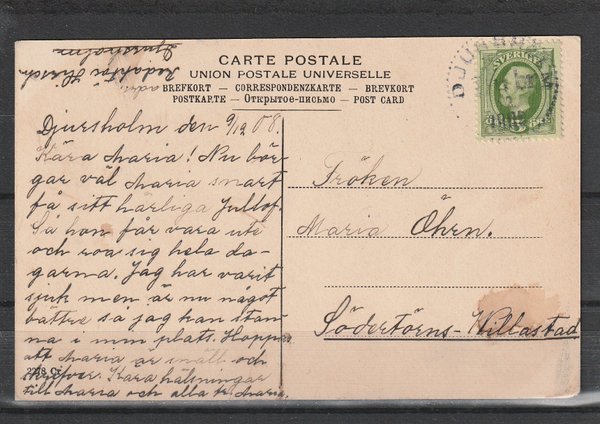 Djursholm
Redaktör Hirsch
adr.
CARTE POSTALE
UNION POSTALE UNIVERSELLE
BREFKORT – CORRESPONDENZKARTE – BREVKORT
POSTKARTE – Открытое-письмо – POST CARD
DJURSHOLM
SVERIGE
Djursholm den 9/12 08.
Kära Maria! Nu bör-
gar väl Maria snart
få sitt härliga Jullof.
Så hon får vara ute
och roa sig hela da-
garna. Jag har varit
sjuk men är nu något
bättre så jag kan stan-
na i min plats. Hoppas
att Maria är snäll och
skrifver. Kära hälsningar
till Maria och alla fr. Maria.
2218 Cr.
Fröken
Maria Öhrn.
Södertörns-Villastad